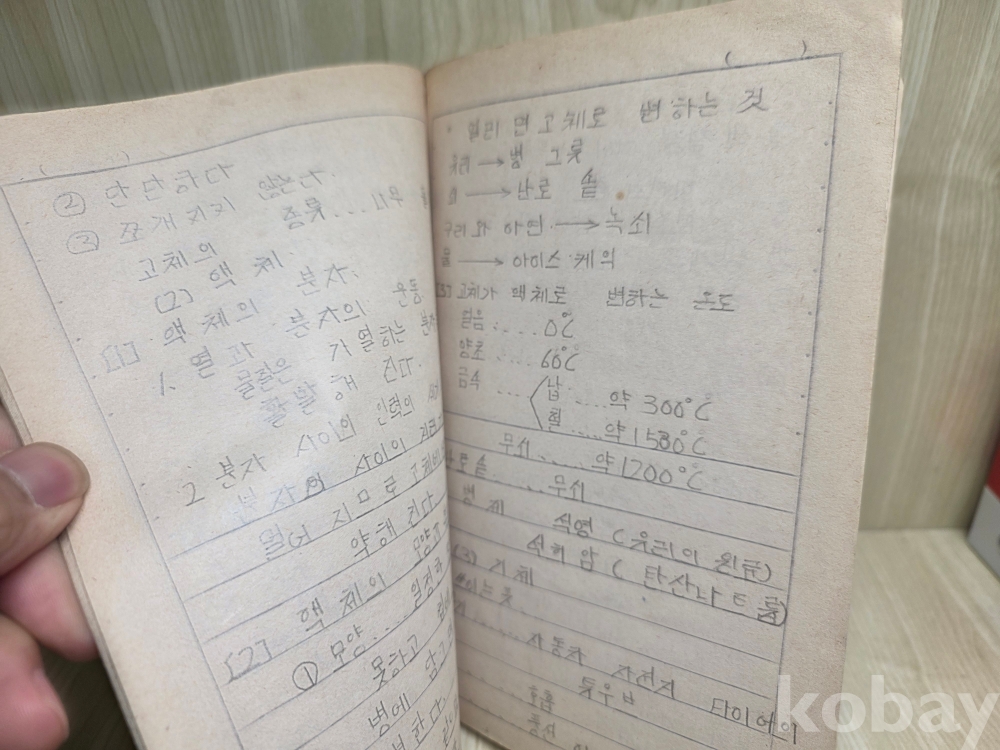 ② 단단하다
③ 쪼개지지 않는다.
고체의 종류... 나무
(2) 액체.
[1] 액체의 분자.
1. 열과 분자의 운동.
물질은 가열하는 분자
활발해 진다.
2 분자 사이의 인력의
분자의 사이의 거리가
멀어 지므로 고체보
약해진다
[2] 액체의 모양과
① 모양... 일정
못하고
병에 담
변한다.
( )
얼리면 고체로 변하는 것
유리 → 병 그릇
쇠 → 난로 솥
구리와 아연 → 놋쇠
물 → 아이스 케의
[3] 고체가 액체로 변하는 온도
얼음 .... 0℃
양초 ... 60℃
금속 .... 납 .... 약 300℃
철 .... 약 1530℃
무쇠 ..... 약 1200℃
난로 솥 무쇠
병 제 석영 (유리의 원료)
석회암 ( 탄산나트륨)
(3) 기체
쓰이는 곳
자동차 자전거 타이어
튜우브
호흡
풍선
kobay